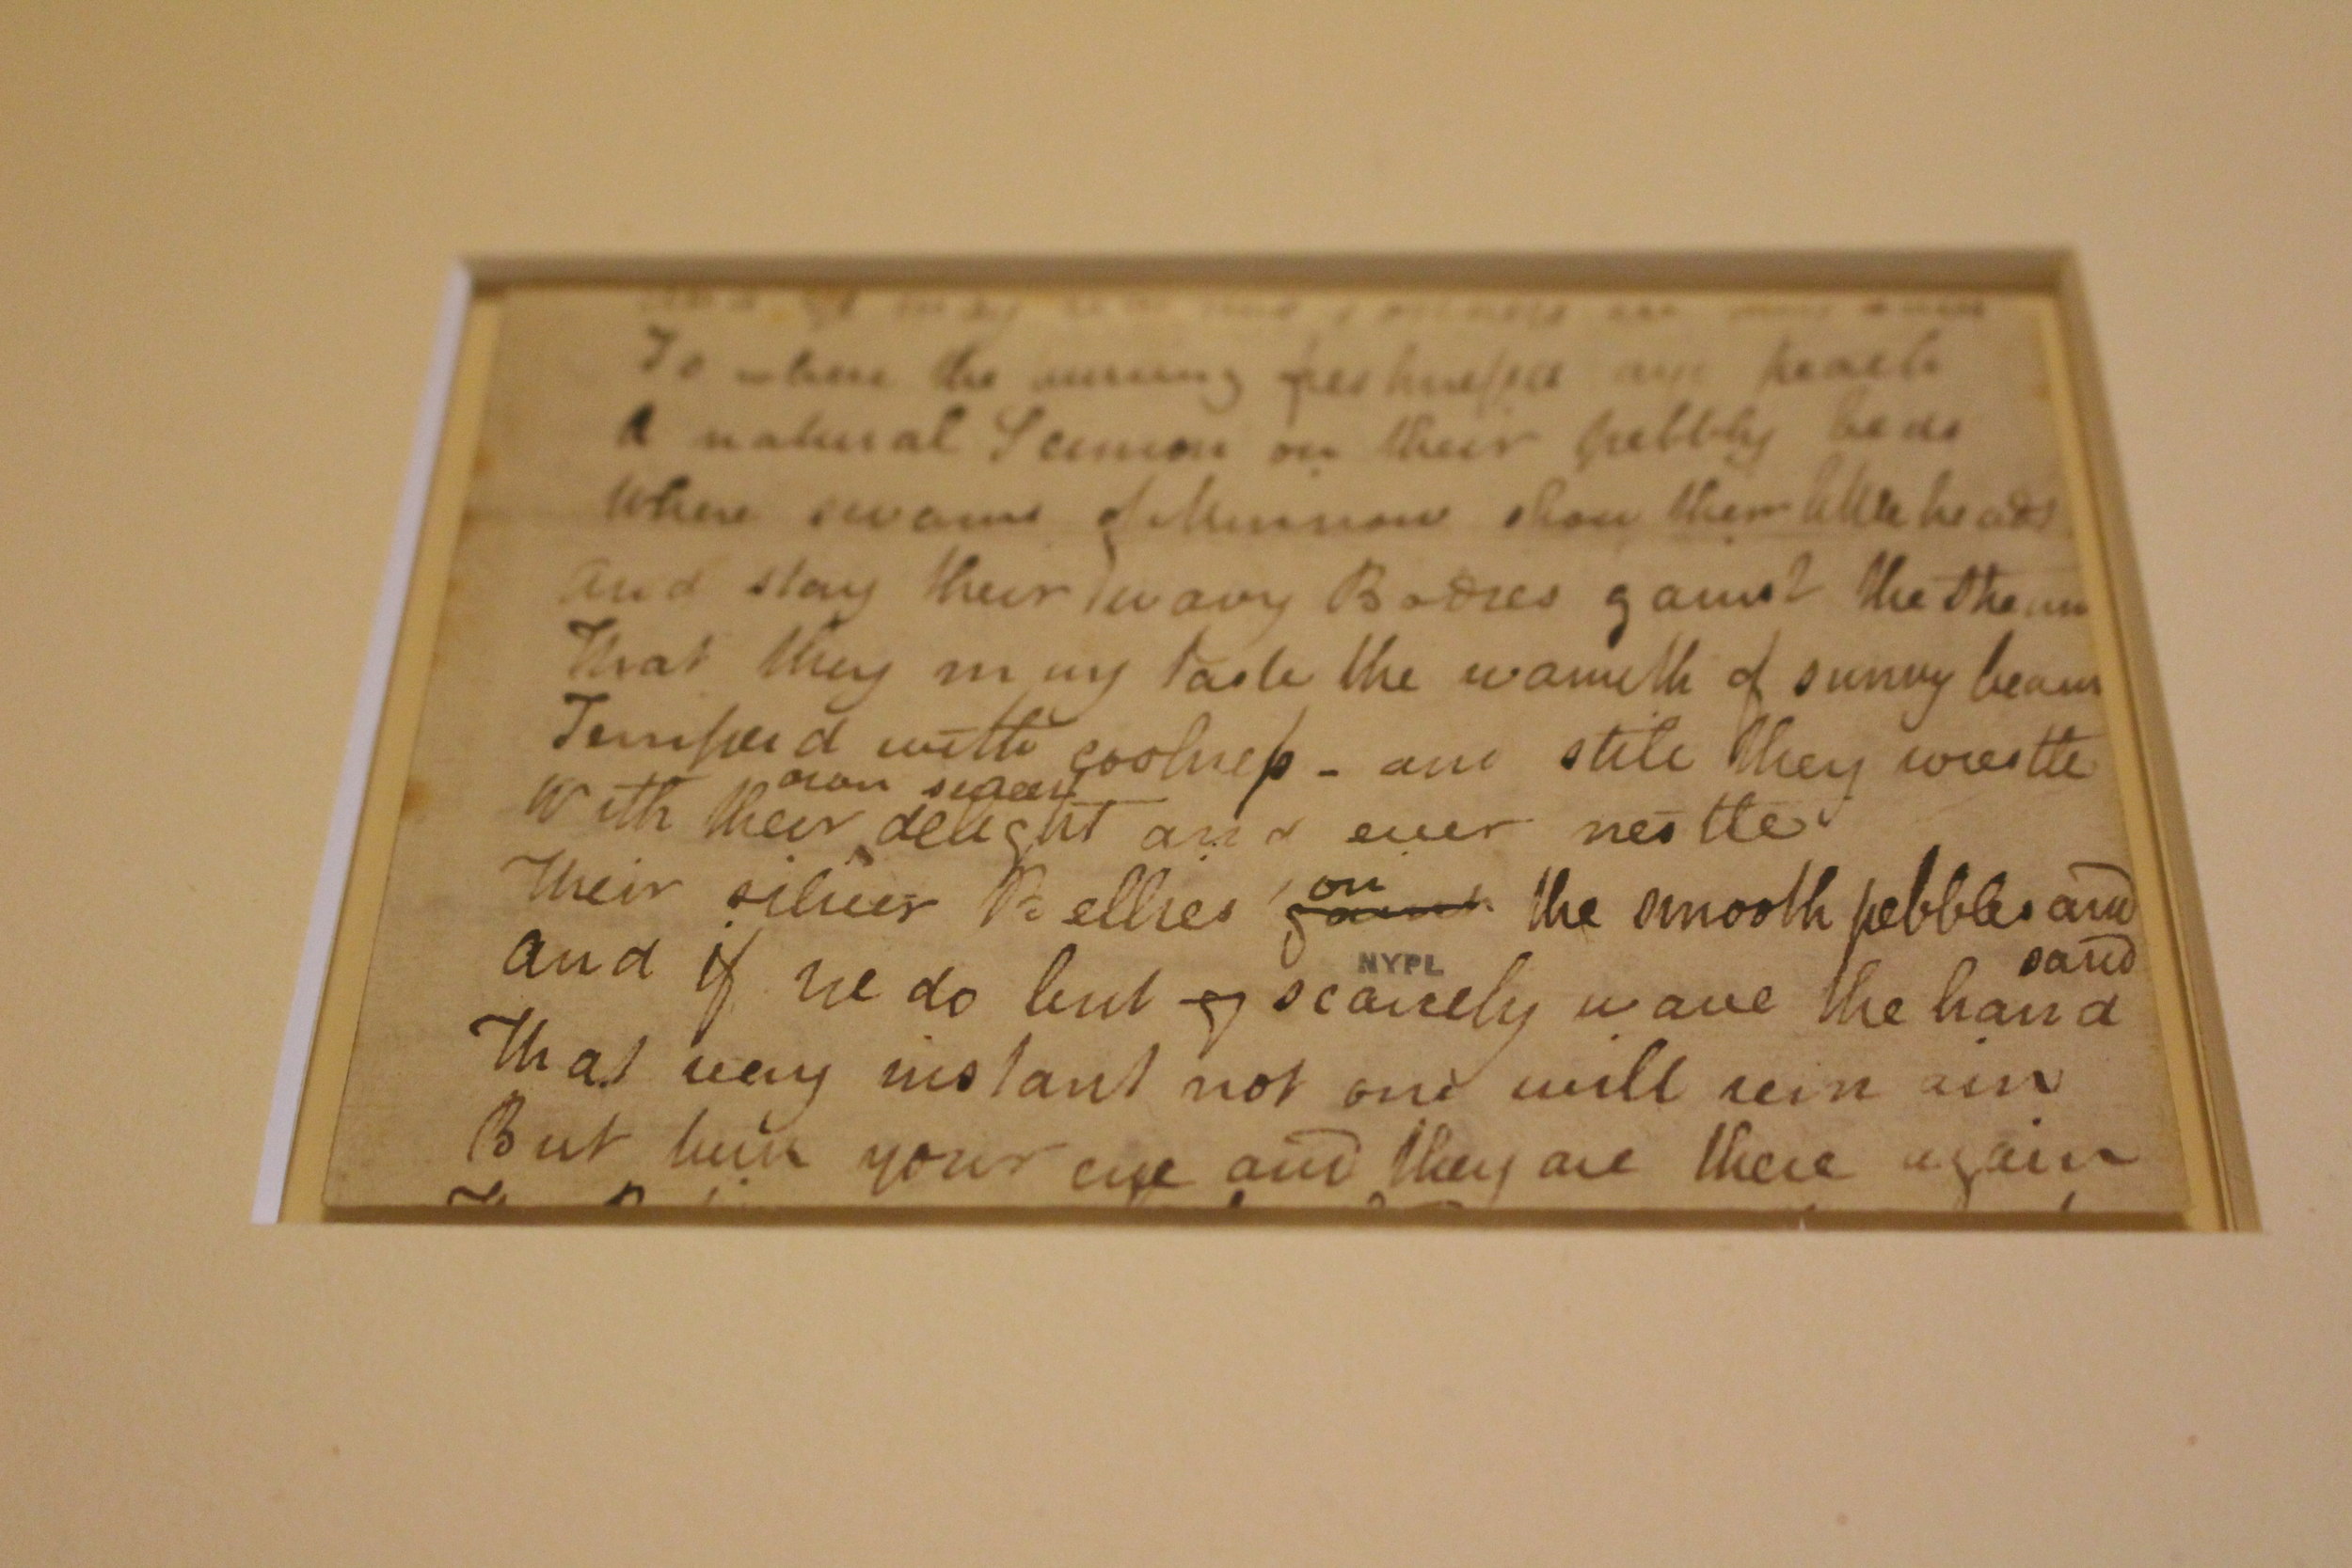 To where the hurrying freshnesses aye preach
A natural Sermon on their pebbly beds
Where swarms of Minnows show their little heads
And stay their wavy Bodies gainst the stream
That they may taste the warmth of sunny beam
Temperd with coolness - and still they wrestle
own sweet
With their delight and ever nestle
on
Their silver Bellies gainst the smooth pebbles and
sand
NYPL
And if we do but scarcely wave the hand
That very instant not one will remain
But turn your eye and they are there again